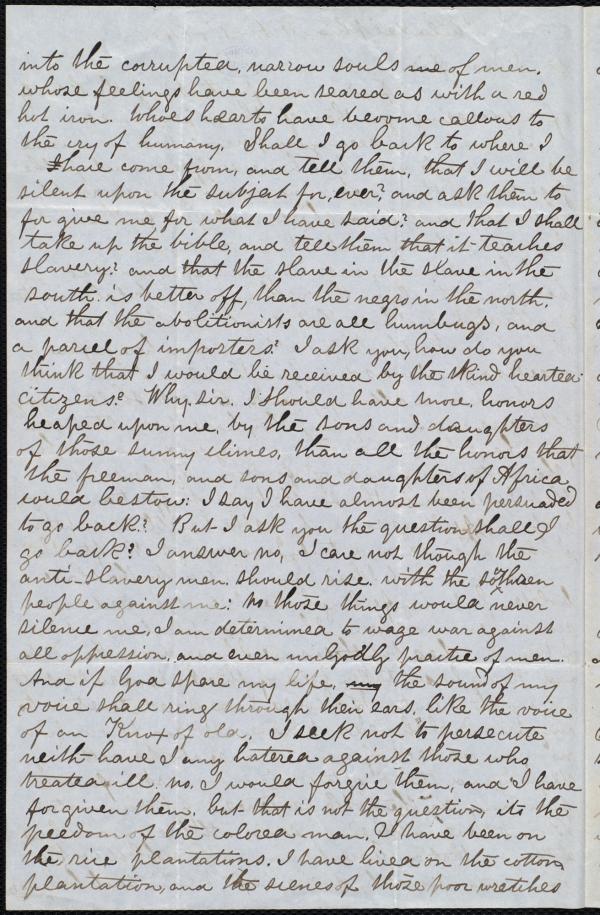 into the corrupted, narrow souls me of men.
whose feelings have been seared as with a red
hot iron. Whoes hearts have become callous to
the cry of humany, Shall I go back to where I
have come from, and tell them, that I will be
silent upon the subject for, ever? and ask them to
for give me for what I have said? and that I shall
take up the bible, and tell them that it teaches
slavery? and that the slave in the slave in the
south. is better off, than the negro in the north.
and that the abolitionists are all humbugs, and
a parcel of importers? I ask you, how do you
think that I would be received by the kind hearted
citizens? Why, sir. I should have more, honors
heaped upon me, by the sons and daughters
of those sunny climes, than all the honors that
the freeman, and sons and daughters of Africa
would bestow: I say I have almost been persuaded
to go back? But I ask you the question shall I
go back? I answer no, I care not though the
anti-slavery men. should rise. with the sothren
people against me: no those things would never
silence me, I am determined to wage war against
all oppression, and even unGodly practic of men.
And if God spare my life, my the sound of my
voice shall ring through their ears, like the voice
of an Knox of old. I seek not to persecute
neith have I any hatered against those who
treated ill. no. I would forgive them, and I have
forgiven them, but that is not the question, its the
freedom of the colored man, I have been on
the, rice plantations. I have lived on the cotton
plantation, and the scienes of those poor wretches